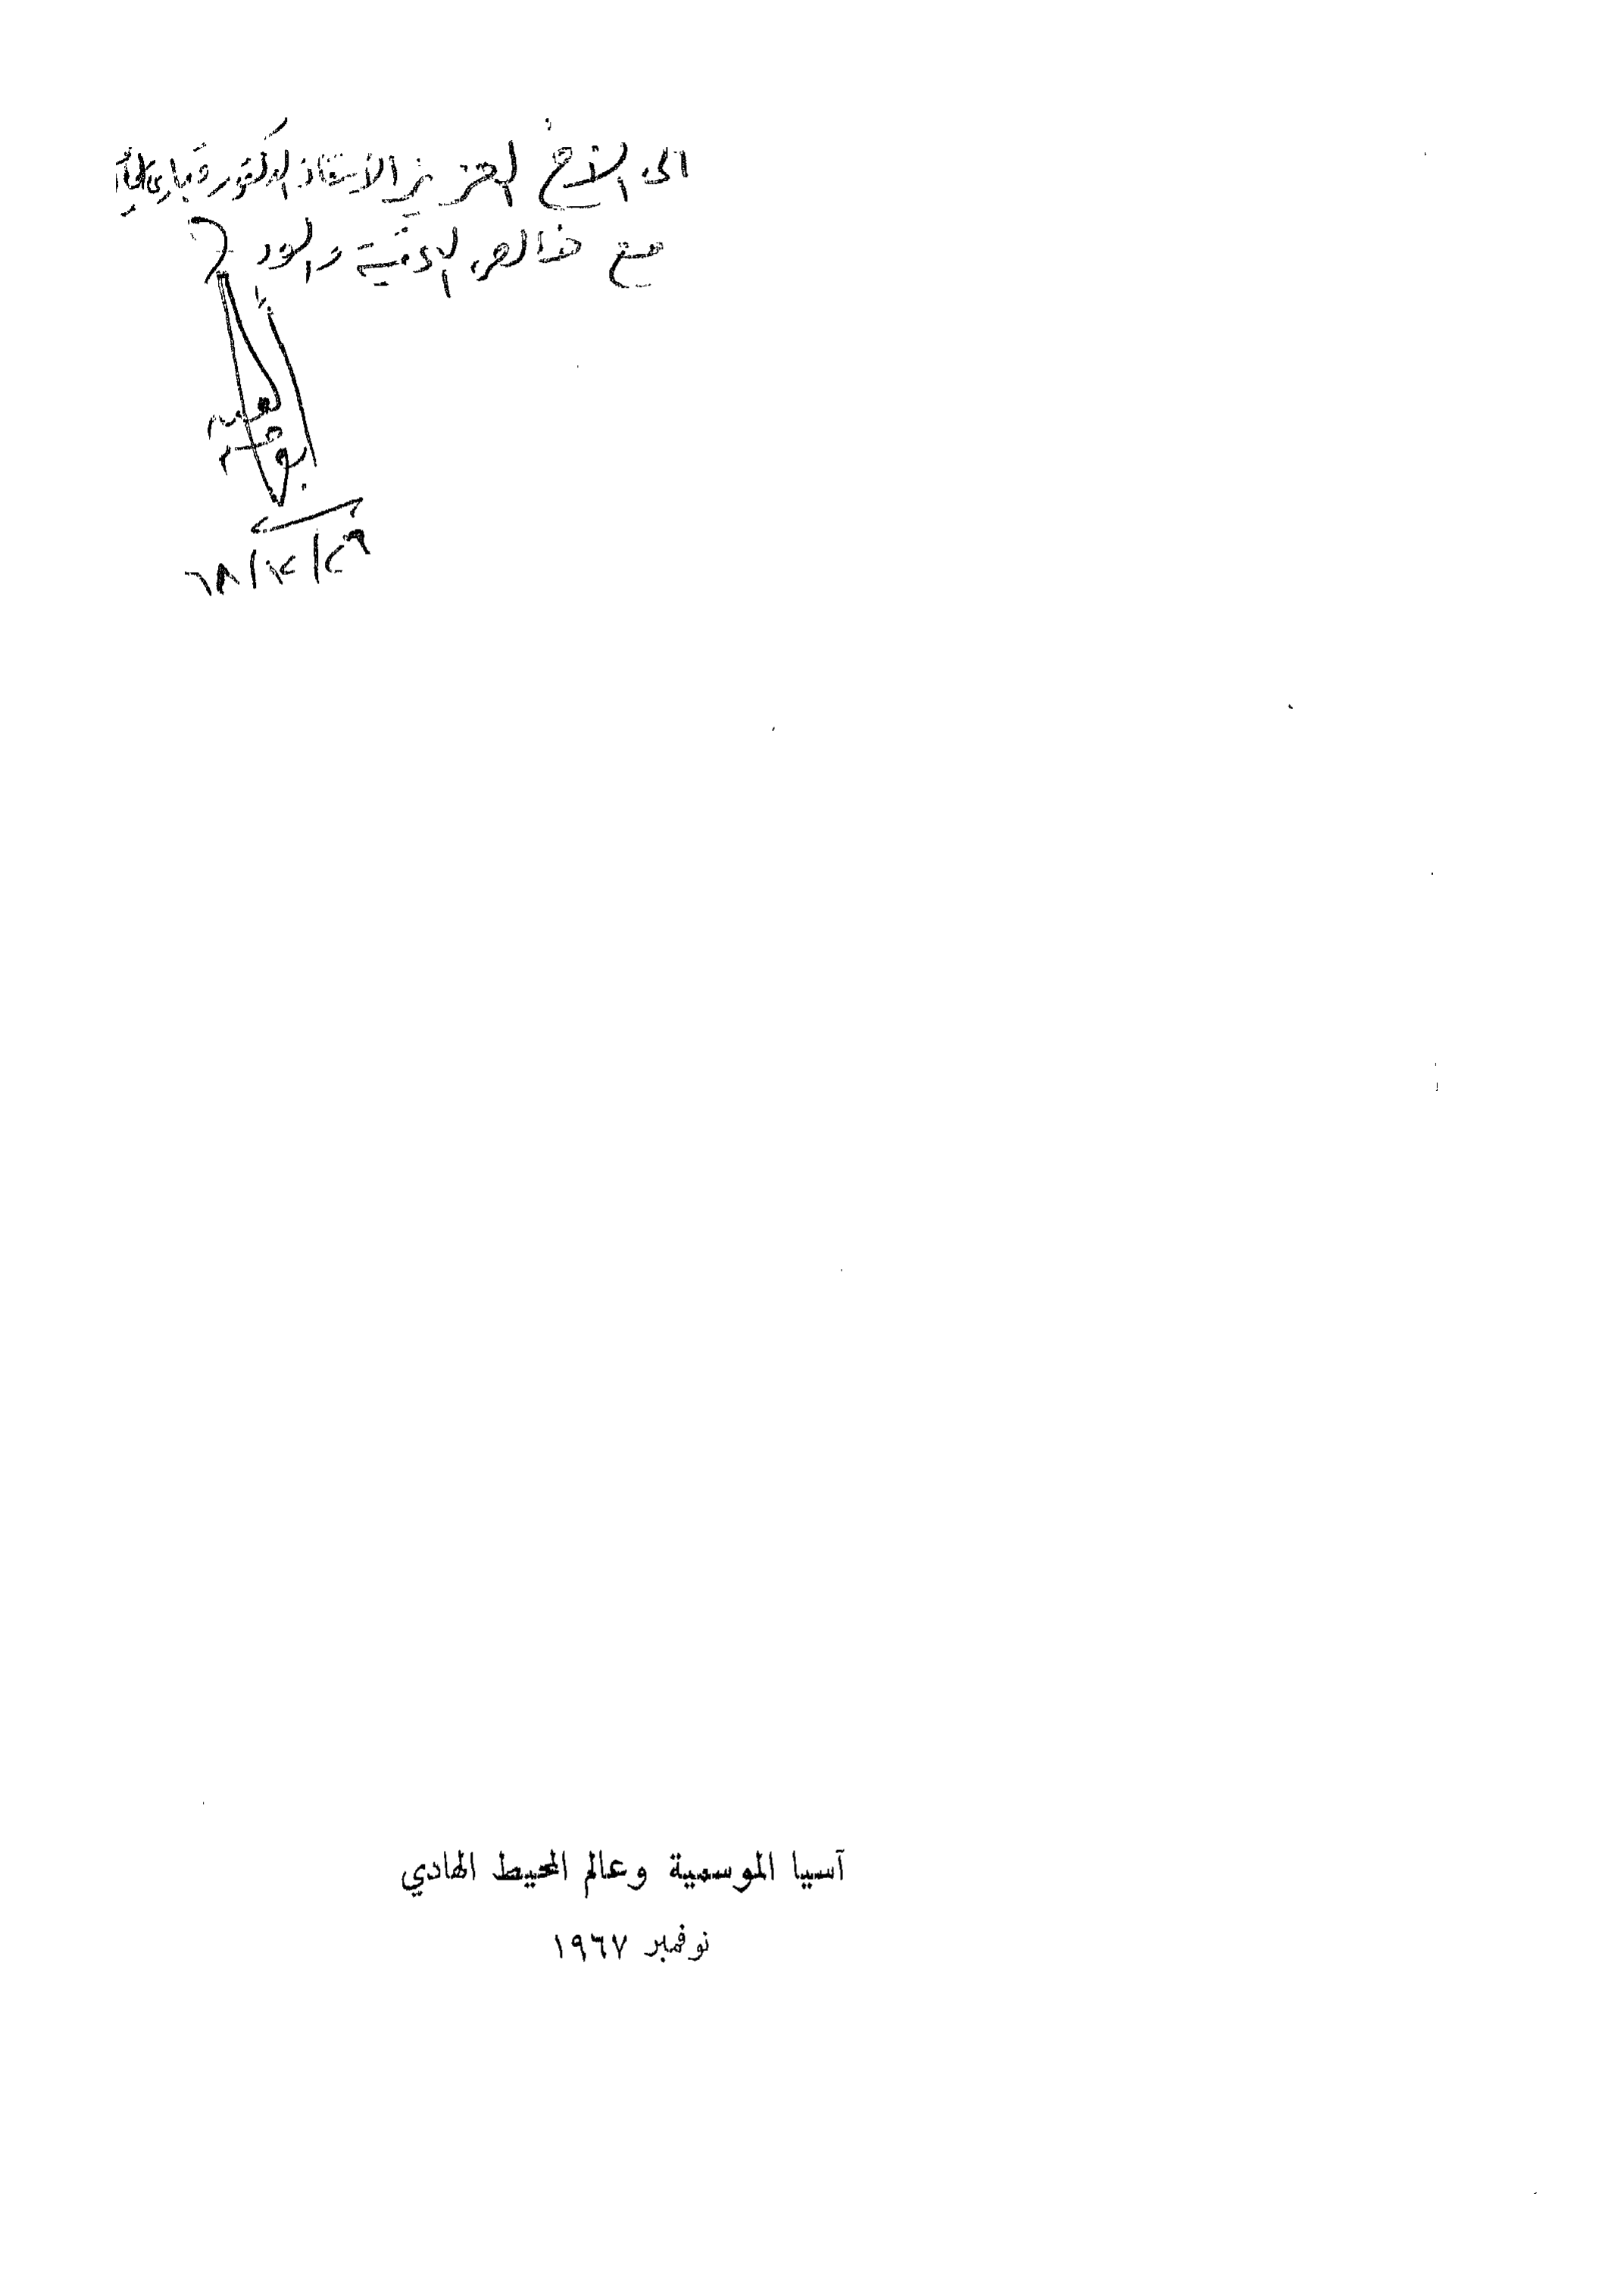 الى الأخ العزيز الأستاذ الدكتور
مع خالص التحية والود
٦٨/١٢/٢٩
آسيا الموسمية وعالم المحيط الهادي
نوفمبر ١٩٦٧